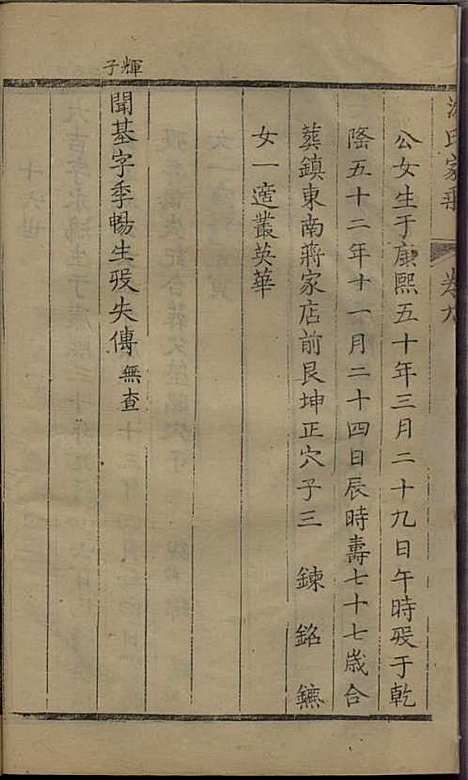 氏家乘
卷九
公女生于康熙五十年三月二十九日午時殁于乾
隆五十二年十一月二十四日辰時壽七十七歲合
葬鎮東南蔣家店前艮坤正穴子三 鍊 銘 鑣
女一適叢英華
輝子
聞基字季暢生殁失傳無查